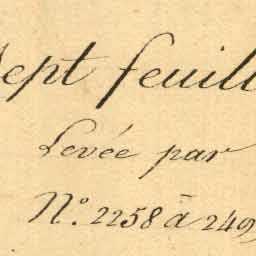 Sept feuill
Levée par
N.º 2258 à 249